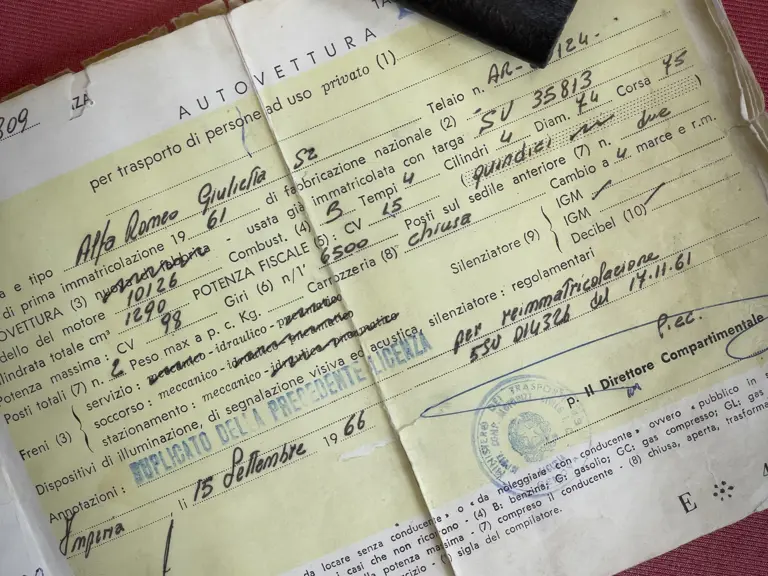 809
ZA
AUTOVETTURA
per trasporto di persone ad uso privato (1)
a e tipo Alfa Romeo Giulietta SZ Telaio n. AR- 124
di prima immatricolazione 19 61 di fabbricazione nazionale (2)
OVETTURA (3) - usata già immatricolata con targa: SV 35813
dello del motore 10126 Combust. (4) B Tempi 4 Cilindri 4 Diam. 74 Corsa 75
lindrata totale cm³ 1290 POTENZA FISCALE (5): CV 15 (quindici)
Potenza massima: CV 98 Giri (6) n/1' 6500 Posti sul sedile anteriore (7) n. due
Posti totali (7) n. 2 Peso max a p. c. Kg. Carrozzeria (8) chiusa Cambio a 4 marce e r.m.
Freni (3)
servizio: meccanico - idraulico - pneumatico
soccorso: meccanico - idraulico pneumatico
stazionamento: meccanico - idraulico pneumatico
Silenziatore (9)
IGM
IGM
Decibel (10)
Dispositivi di illuminazione, di segnalazione visiva ed acustica, silenziatore: regolamentari
Annotazioni: DUPLICATO DELLA PRECEDENTE LICENZA per reimmatricolazione
SSV 014326 del 17.11.61
Imperia li 15 Settembre 1966
p.cc.
p. Il Direttore Compartimentale
da locare senza conducente » o « da noleggiare con conducente » ovvero « pubblico in s
i casi che non ricorrono - (4) B: benzina; G: gasolio; GC: gas compresso; GL: gas
la potenza massima - (7) compreso il conducente - (8) chiusa, aperta, trasforma
sigla del compilatore.
E